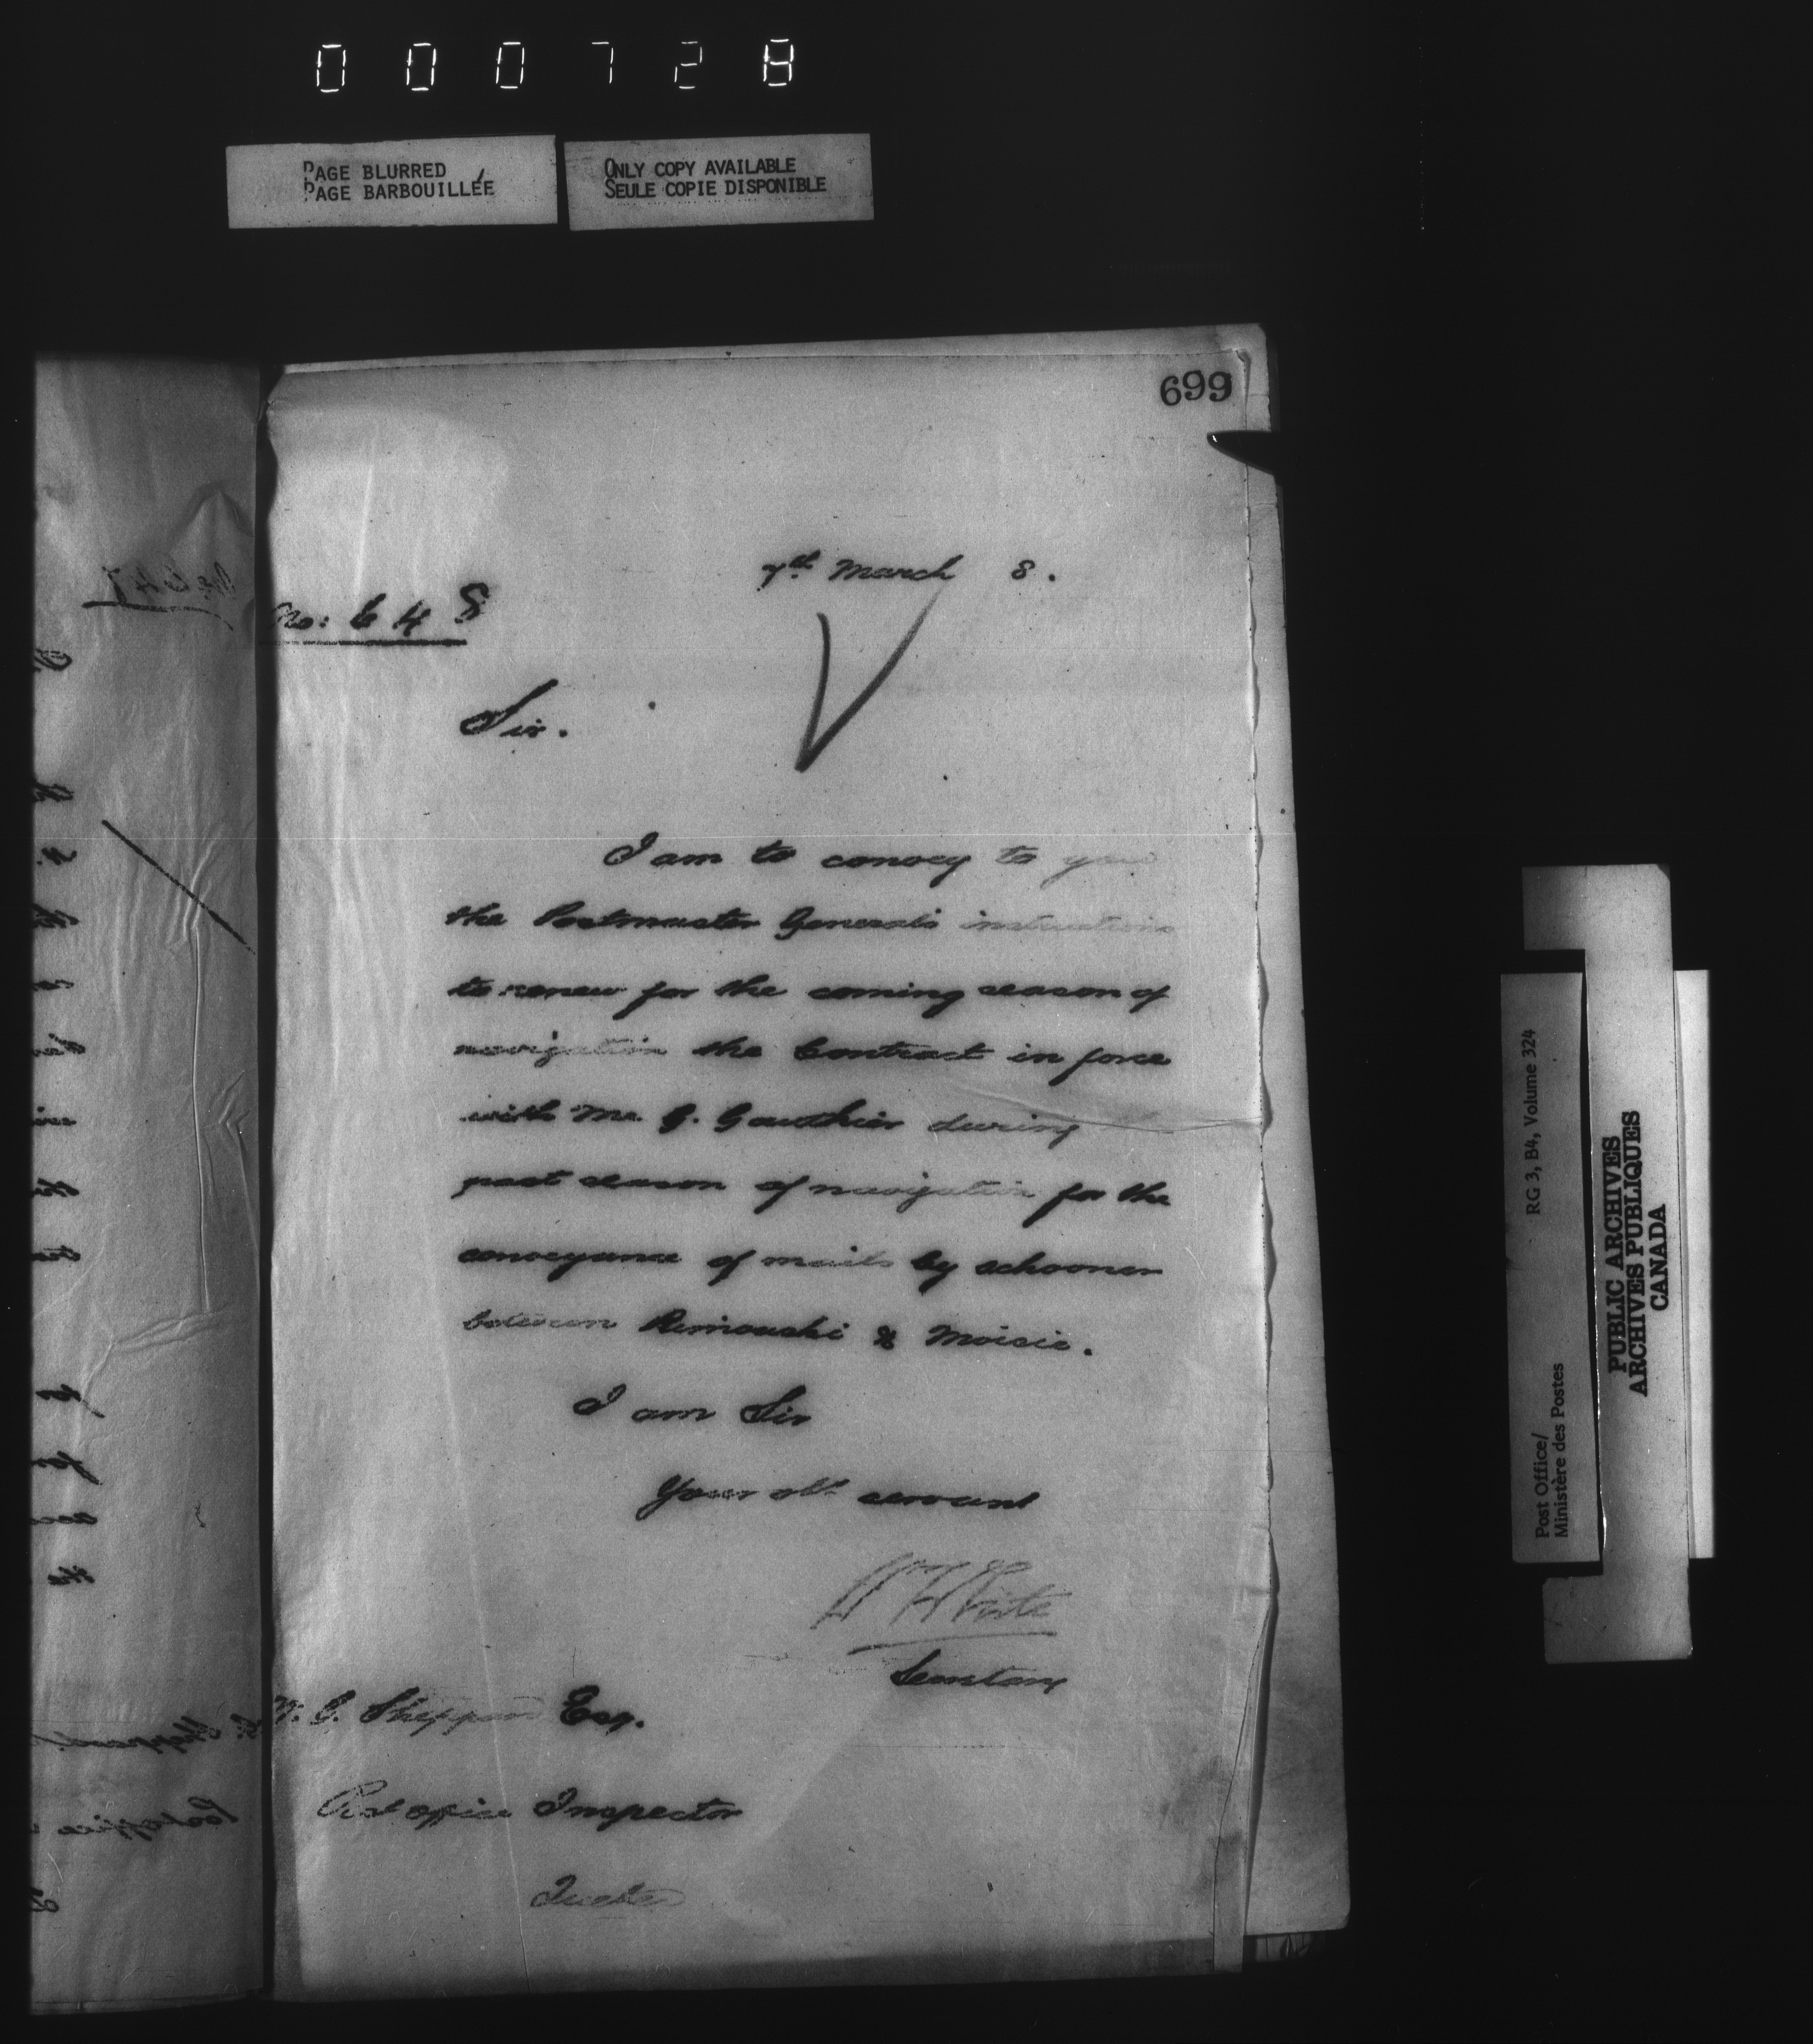 000728
PAGE BLURRED
PAGE BARBOUILLÉE
ONLY COPY AVAILABLE
SEULE COPIE DISPONIBLE
699
7th March 8.
No: 648
Sir.
I am to convey to you
the Postmaster General's instructions
to renew for the coming season of
navigation the Contract in force
with Mr. G. Gauthier during
past season of navigation for the
conveyance of mails by schooner
between Rimouski & Moisie.
I am Sir
Your obt servant
W White
Secretary
W. G. Sheppard Esq.
Post office Inspector
Quebec
RG 3, B4, Volume 324
Post Office/
Ministère des Postes
PUBLIC ARCHIVES
ARCHIVES PUBLIQUES
CANADA